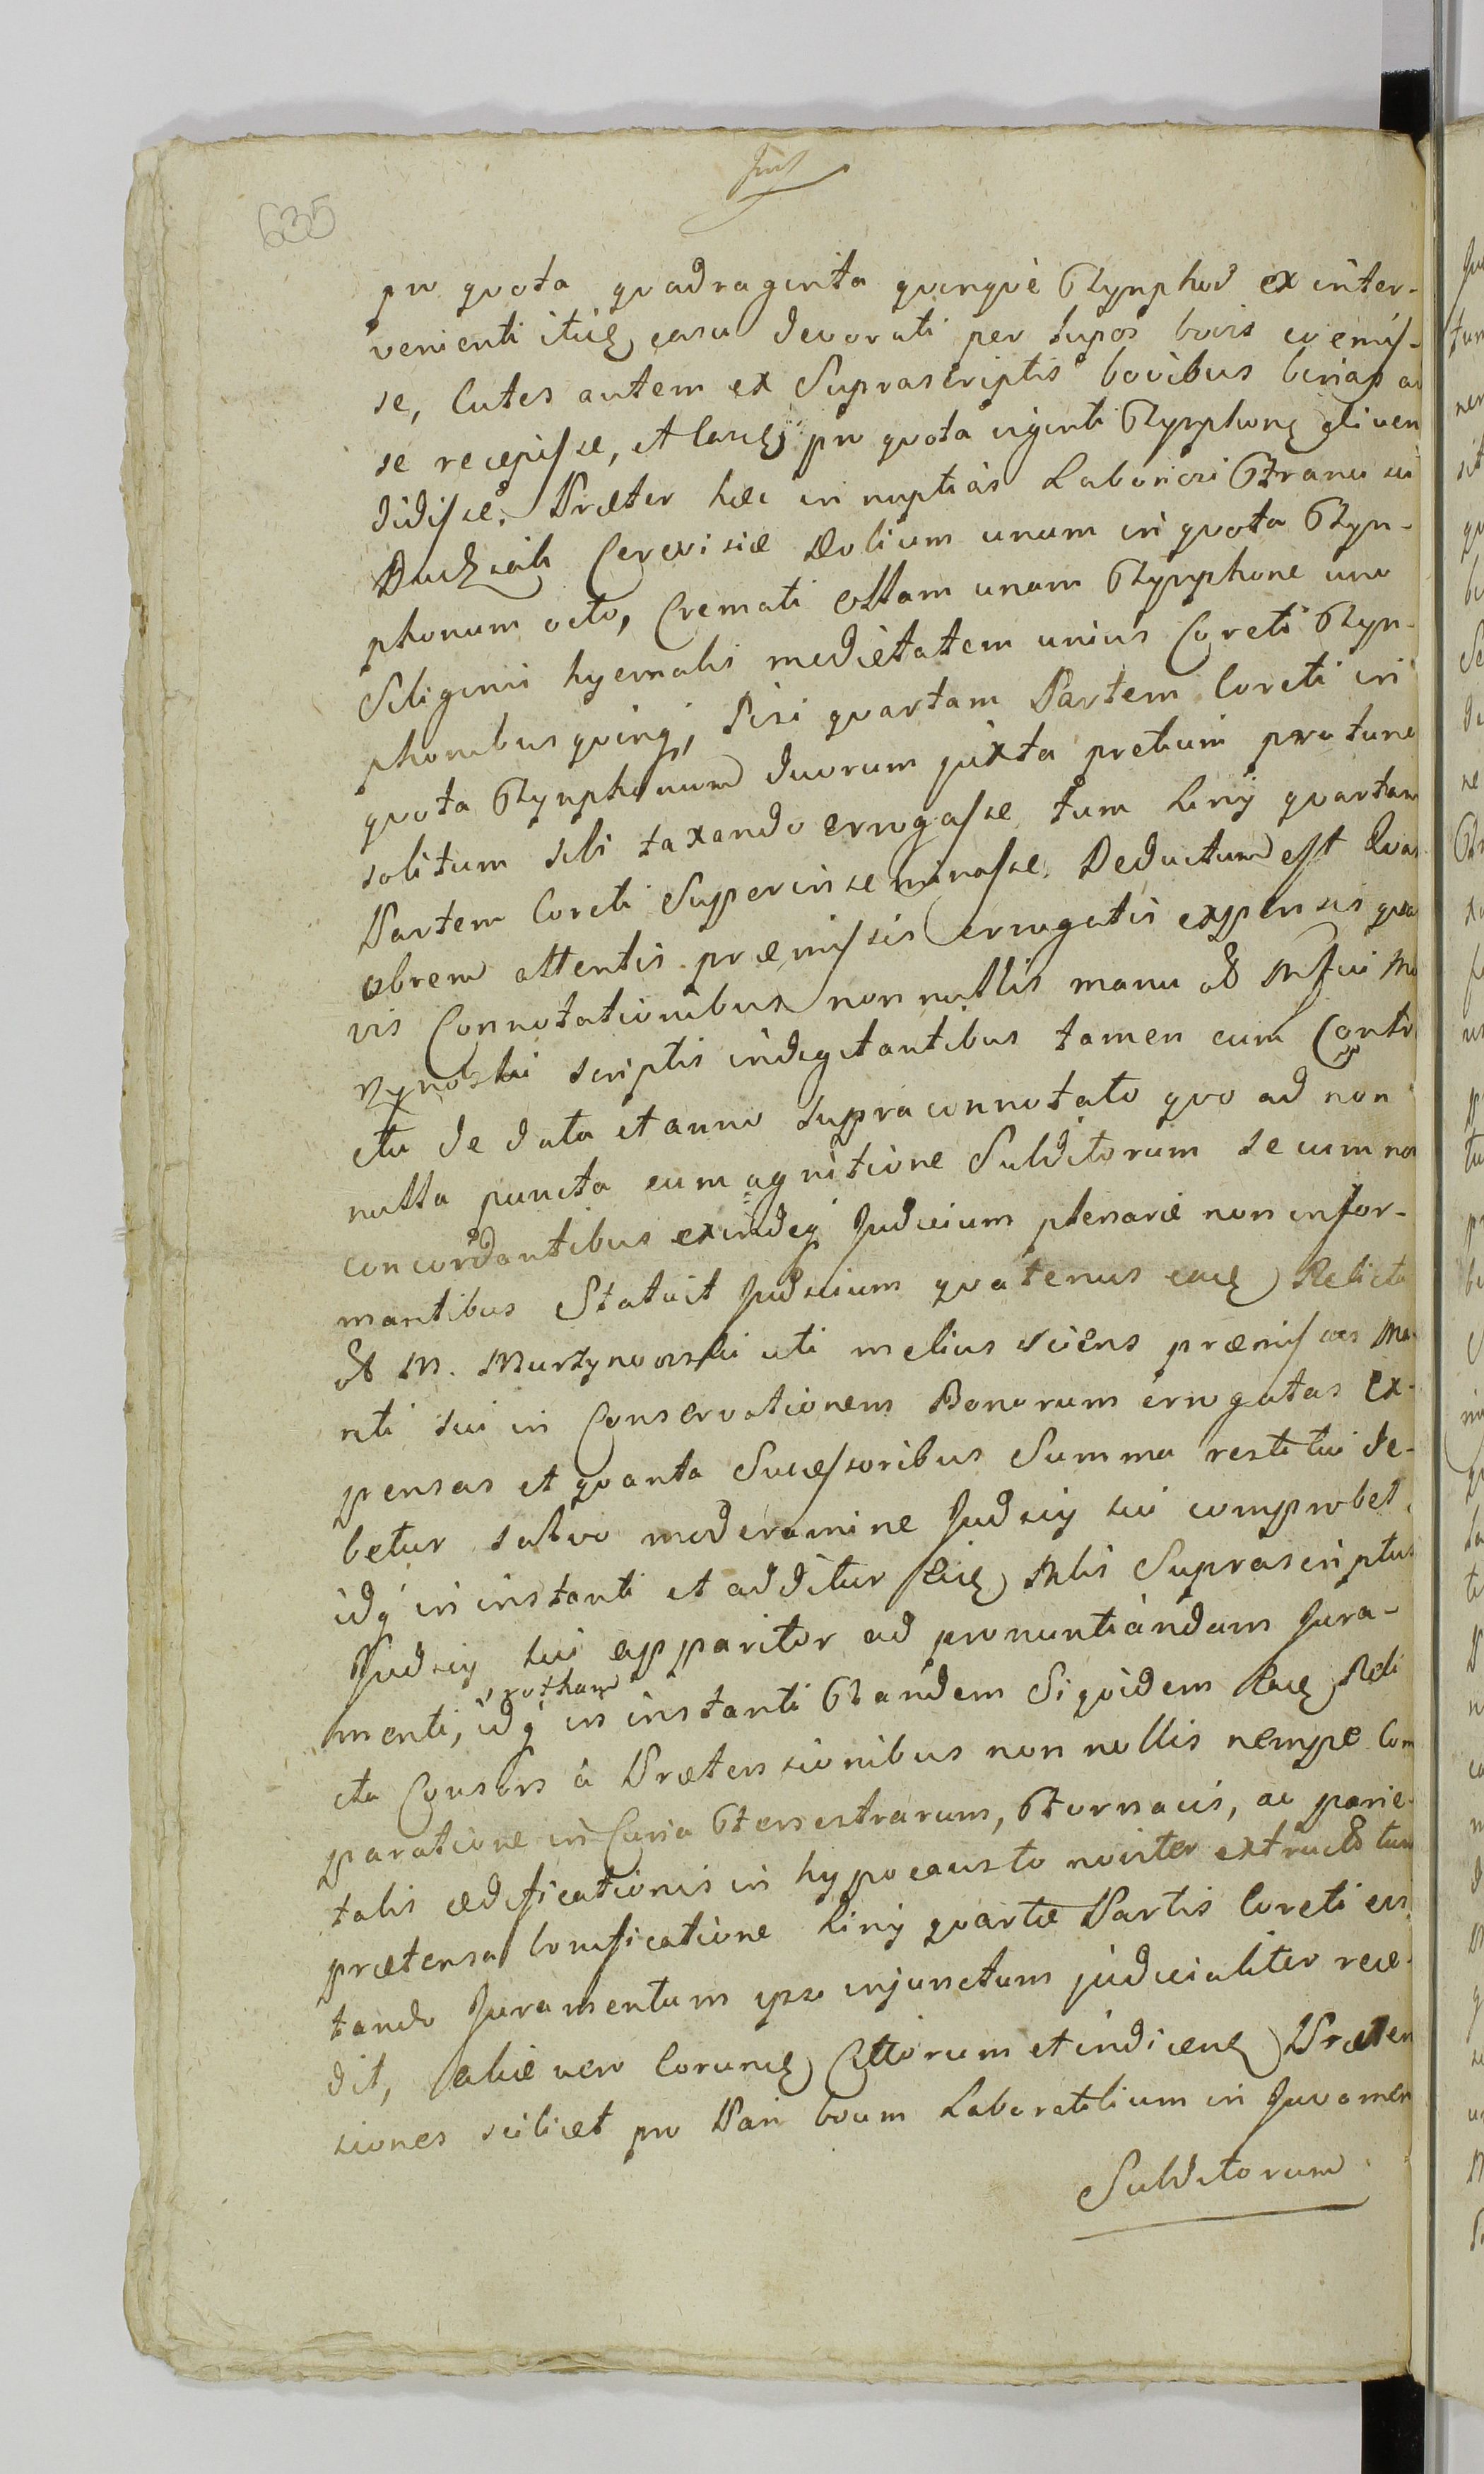 635
pro quota quadraginta quinque Rhynphod ex inter-
venienti itid casu devorati per Lupos bovis coemis-
se, Cutes autem ex Suprascriptis bovibus binas a
se recepisse, et pro quota viginti Rhynphon dliven
didisse. Præter hæc in nuptias Laboriosi
Cerevisiæ Dolium unum in quota Rhyn-
phonum octo, Cremati ollam unam Rhynphone uno
Siliginis hyemalis medietatem unius Coreti Rhyn-
phonibus quinq, Pisi quartam Partem Coreti in
quota Rhynphonum duorum juxta pretium pro tunc
solitum sibi taxando errogasse, tum Linij quartam
Partem Coreti Superinseminasse. Deductum est Quam
obrem attentis præmissis errogatis expensis qua
vis Connotationibus nonnullis manu
scriptis indigitantibus tamen cum Contra
ctu de data et anno supraconnotato quo ad non
nulla puncta cum agnitione Subditorum se cum non
concordantibus exindeq Judicium plenarie non infor-
mantibus Statuit Judicium quatenus Relicta
M. Murzynowski uti melius sciens præmissas Ma
riti sui in Conservationem Bonorum errogatas Ex-
pensas et quanta Successoribus Summa restitui de-
betur salvo moderamine Judicij sui comprobet,
idq in instanti et additur Nblis Suprascriptus
Judicij sui apparitor ad pronuntiandam Jura-
menti, rotham idq in instanti Tandem Siquidem Reli
cta Consors à Prætensionibus non nullis nempe Com
paratione in Curia Fenestrarum, Fornacis, ac parie-
talis ædificationis in hypocausto noviter extructo tum
prætensa bonificatione Linij quartæ Partis Coreti exi
tando Juramentum ipso injunctum judicialiter rece-
dit, aliæ vero Actorum et indicend Præten
siones scilicet pro Pari boum Laboratilium in Juvamen
Subditorum